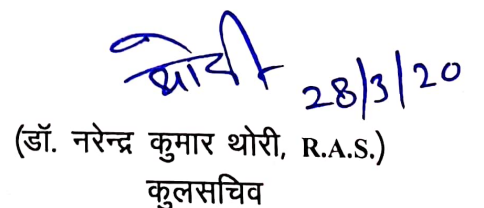 थोरी 28/3/20
(डॉ. नरेन्द्र कुमार थोरी, R.A.S.)
कुलसचिव